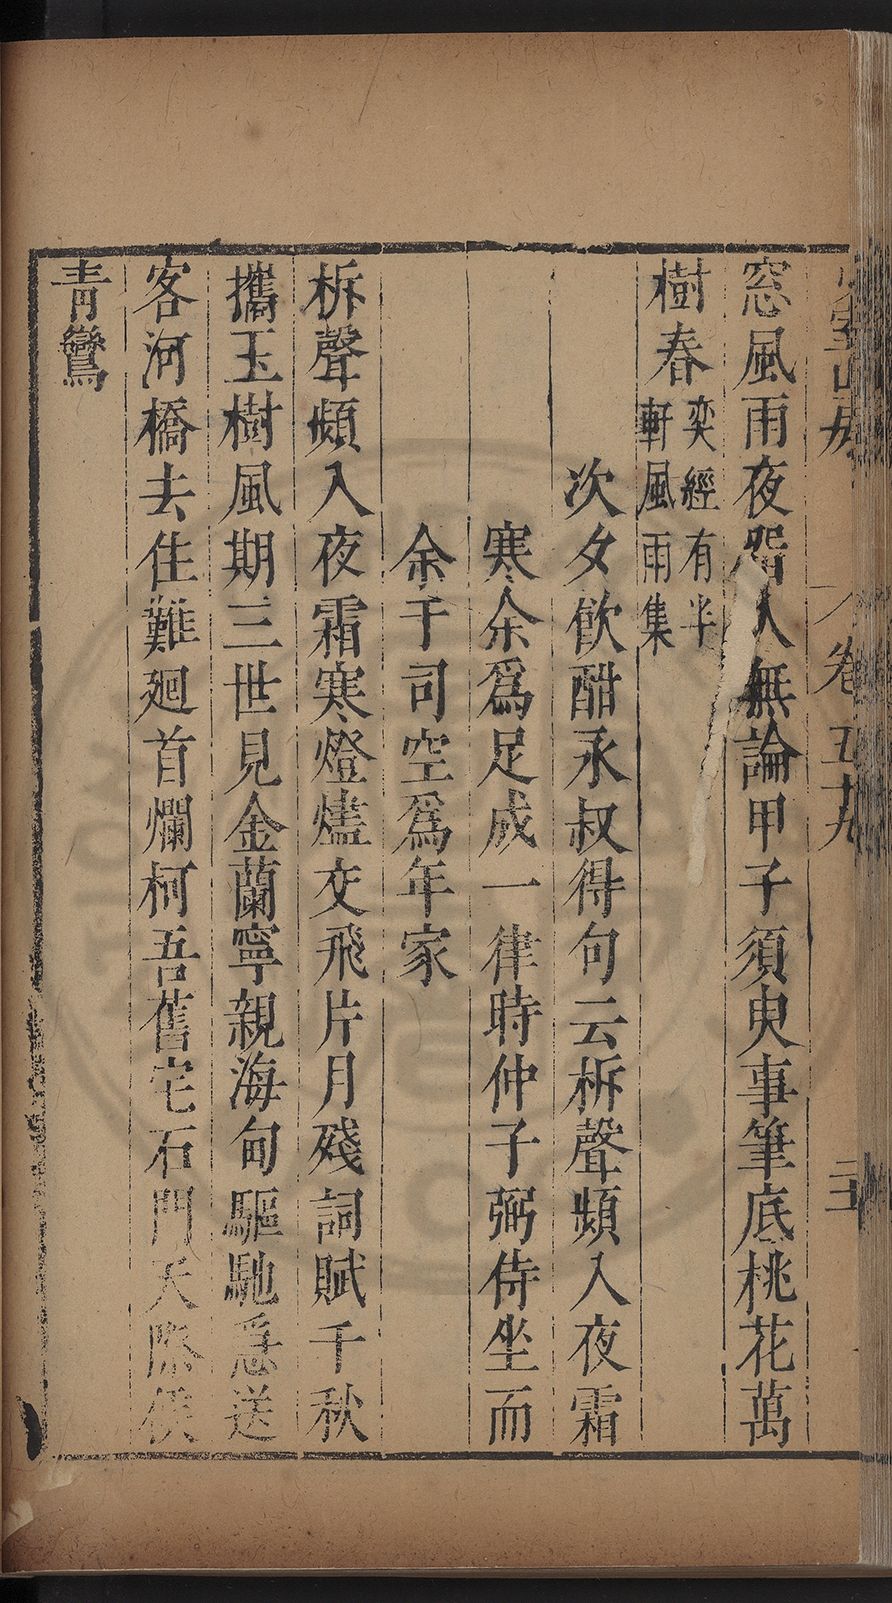 卷五十九
窓風雨夜留人無論甲子須臾事筆底桃花萬
樹春奕經有半軒風雨集
次夕飲酣永叔得句云柝聲頻入夜霜
寒余爲足成一律時仲子弼侍坐而
余于司空爲年家
柝聲頻入夜霜寒燈燼交飛片月殘詞賦千秋
攜玉樹風期三世見金蘭寧親海甸驅馳急送
客河橋去住難廻首爛柯吾舊宅石門天際
青鸞